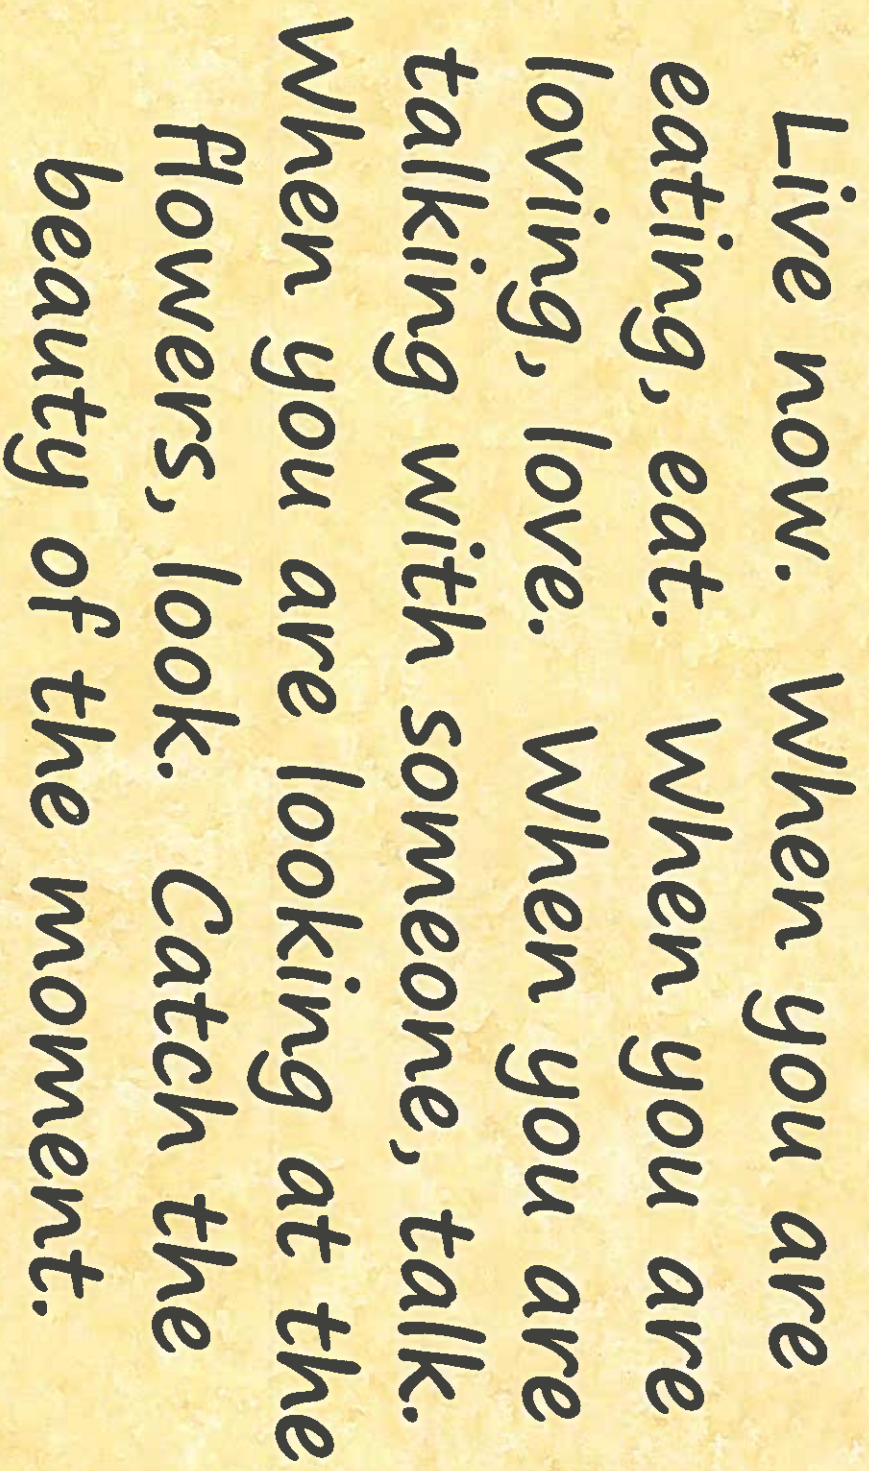 Live now. When you are
eating, eat. When you are
loving, love. When you are
talking with someone, talk.
When you are looking at the
flowers, look. Catch the
beauty of the moment.